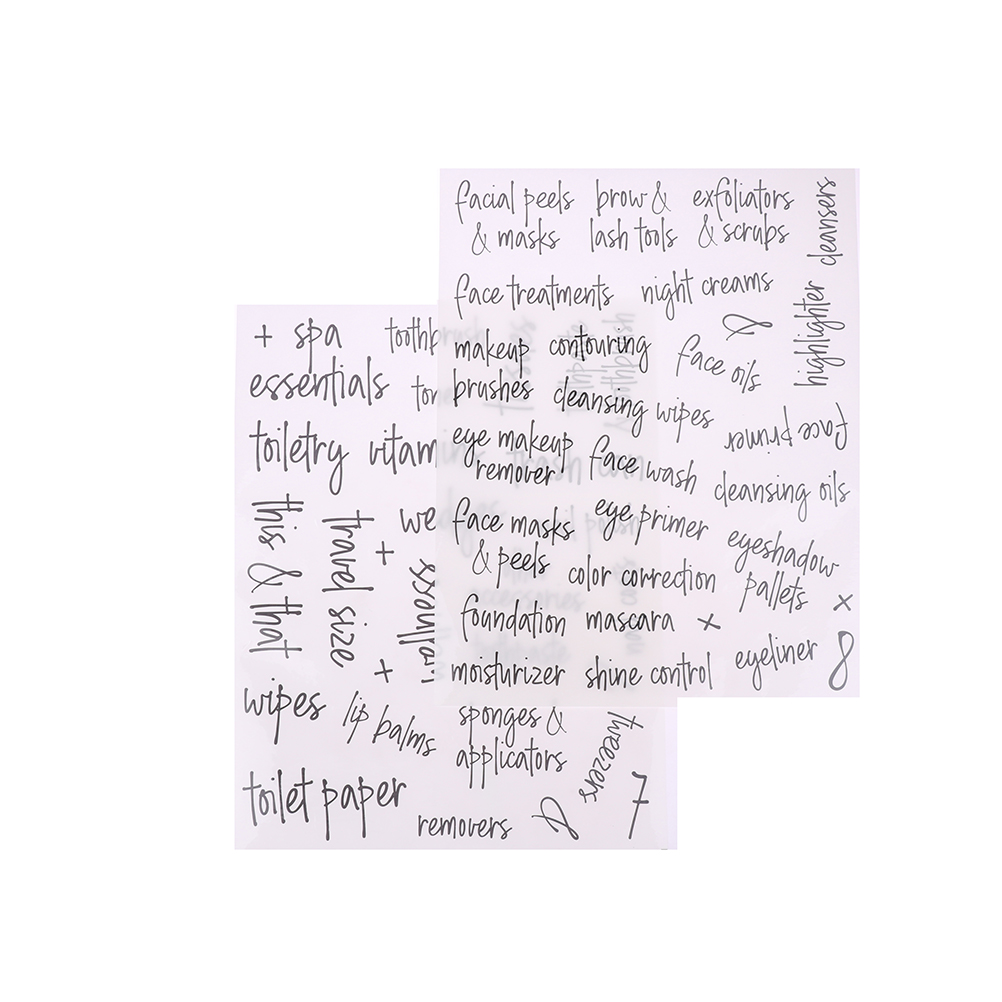 facial peels
& masks
brow &
lash tools
exfoliators
& scrubs
cleansers
highlighter
face treatments
night creams
&
makeup
brushes
contouring
face oils
cleansing wipes
face primer
eye makeup
remover
face wash
cleansing oils
face masks
& peels
eye primer
eyeshadow
pallets
+
color correction
foundation
mascara
+
moisturizer
shine control
eyeliner
8
+ spa
essentials
toothbrush
toiletry
vitamins
trash
this & that
travel size
+
+
wipes
lip balms
sponges &
applicators
tweezers
toilet paper
removers
&
7